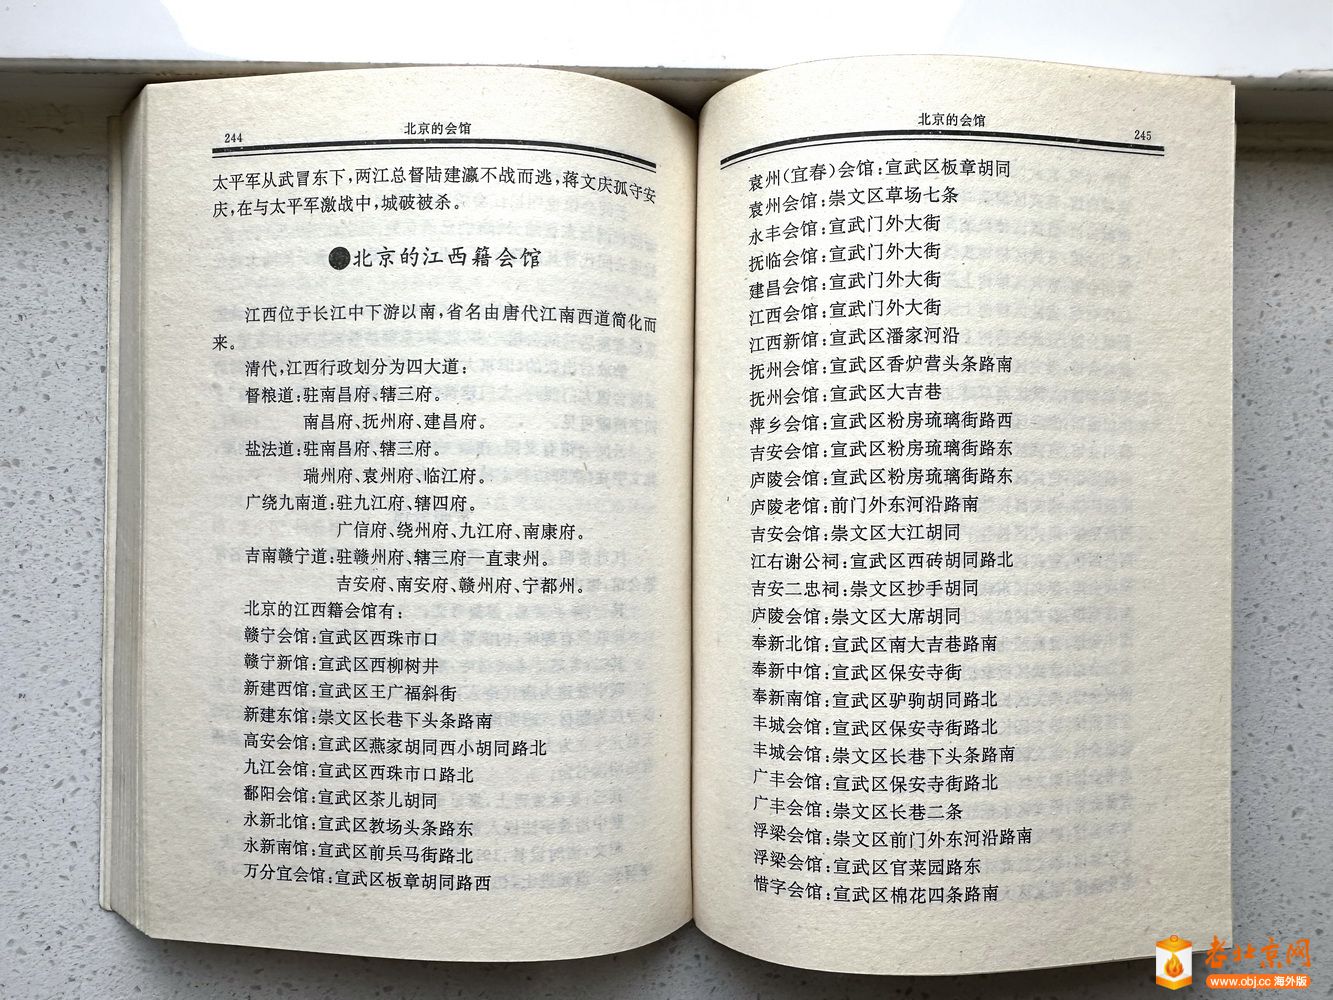 244
北京的会馆
太平军从武冒东下,两江总督陆建瀛不战而逃,蒋文庆孤守安
庆,在与太平军激战中,城破被杀。
●北京的江西籍会馆
江西位于长江中下游以南,省名由唐代江南西道简化而
来。
清代,江西行政划分为四大道:
督粮道:驻南昌府、辖三府。
南昌府、抚州府、建昌府。
盐法道:驻南昌府、辖三府。
瑞州府、袁州府、临江府。
广绕九南道:驻九江府、辖四府。
广信府、绕州府、九江府、南康府。
吉南赣宁道:驻赣州府、辖三府一直隶州。
吉安府、南安府、赣州府、宁都州。
北京的江西籍会馆有:
赣宁会馆:宣武区西珠市口
赣宁新馆:宣武区西柳树井
新建西馆:宣武区王广福斜街
新建东馆:崇文区长巷下头条路南
高安会馆:宣武区燕家胡同西小胡同路北
九江会馆:宣武区西珠市口路北
鄱阳会馆:宣武区茶儿胡同
永新北馆:宣武区教场头条路东
永新南馆:宣武区前兵马街路北
万分宜会馆:宣武区板章胡同路西
北京的会馆
245
袁州(宜春)会馆:宣武区板章胡同
袁州会馆:崇文区草场七条
永丰会馆:宣武门外大街
抚临会馆:宣武门外大街
建昌会馆:宣武门外大街
江西会馆:宣武门外大街
江西新馆:宣武区潘家河沿
抚州会馆:宣武区香炉营头条路南
抚州会馆:宣武区大吉巷
萍乡会馆:宣武区粉房琉璃街路西
吉安会馆:宣武区粉房琉璃街路东
庐陵会馆:宣武区粉房琉璃街路东
庐陵老馆:前门外东河沿路南
吉安会馆:崇文区大江胡同
江右谢公祠:宣武区西砖胡同路北
吉安二忠祠:崇文区抄手胡同
庐陵会馆:崇文区大席胡同
奉新北馆:宣武区南大吉巷路南
奉新中馆:宣武区保安寺街
奉新南馆:宣武区驴驹胡同路北
丰城会馆:宣武区保安寺街路北
丰城会馆:崇文区长巷下头条路南
广丰会馆:宣武区保安寺街路北
广丰会馆:崇文区长巷二条
浮梁会馆:崇文区前门外东河沿路南
浮梁会馆:宣武区官菜园路东
惜字会馆:宣武区棉花四条路南
老北京网
www.obj.cc 海外版